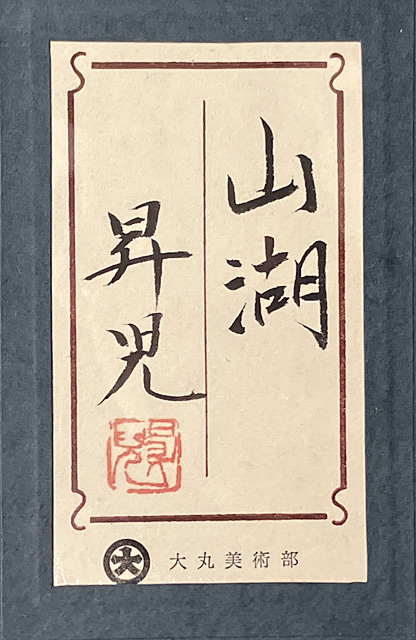 山湖
昇児
大
大丸美術部